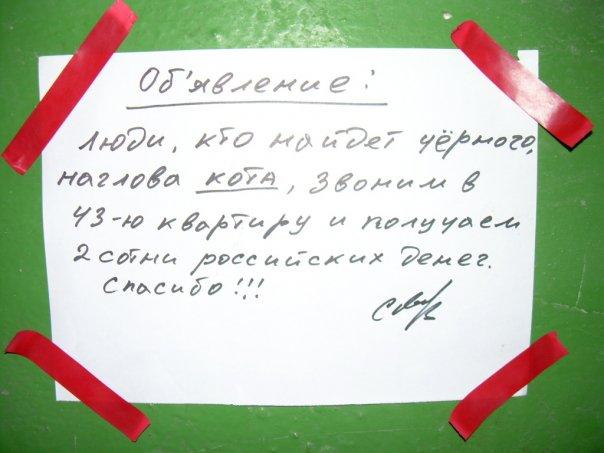 Об'явление:
люди, кто найдет чёрного,
наглова кота, звоним в
43-ю квартиру и получаем
2 сотни российских денег.
Спасибо!!!